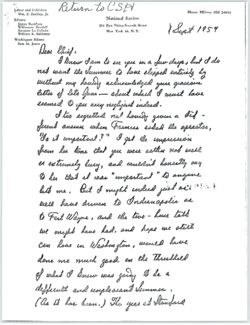 Return to CSPI
Editor and Publisher
Wm. F. Buckley, Jr.
Editors
James Burnham
Willmoore Kendall
Suzanne La Follette
William A. Rickenbacker
National Review
New York 16, N. Y.
1 Sept 1959
Dear Chief:
I know I am to see you in a few days, but I do
not want the Summer to have elapsed entirely by
without my having acknowledged your gracious
letter of late June — silence which I must have
seemed to you very negligent indeed.
I too regretted not having given a dif-
ferent answer when Frances asked the operator,
"Is it important?" I got the impression
from her tone that you were either not well
or extremely busy, and couldn't honestly say
to her that it was "important" to anyone
but me. But I might indeed just as
well have driven to Indianapolis as
to Fort Wayne, and the two-hour talk
we might have had, and hope we still
can have in Washington, would have
done me much good on the threshold
of what I knew was going to be a
difficult and unpleasant summer.
(As it has been.) The year at Stanford